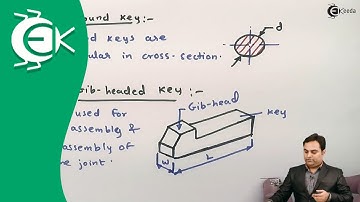 Ekeeda
ound key:-
d keys are
ular in cross-section.
d
Gib-headed key:-
used for
assembly &
assembly of
e joint.
Gib-head
key
W
L